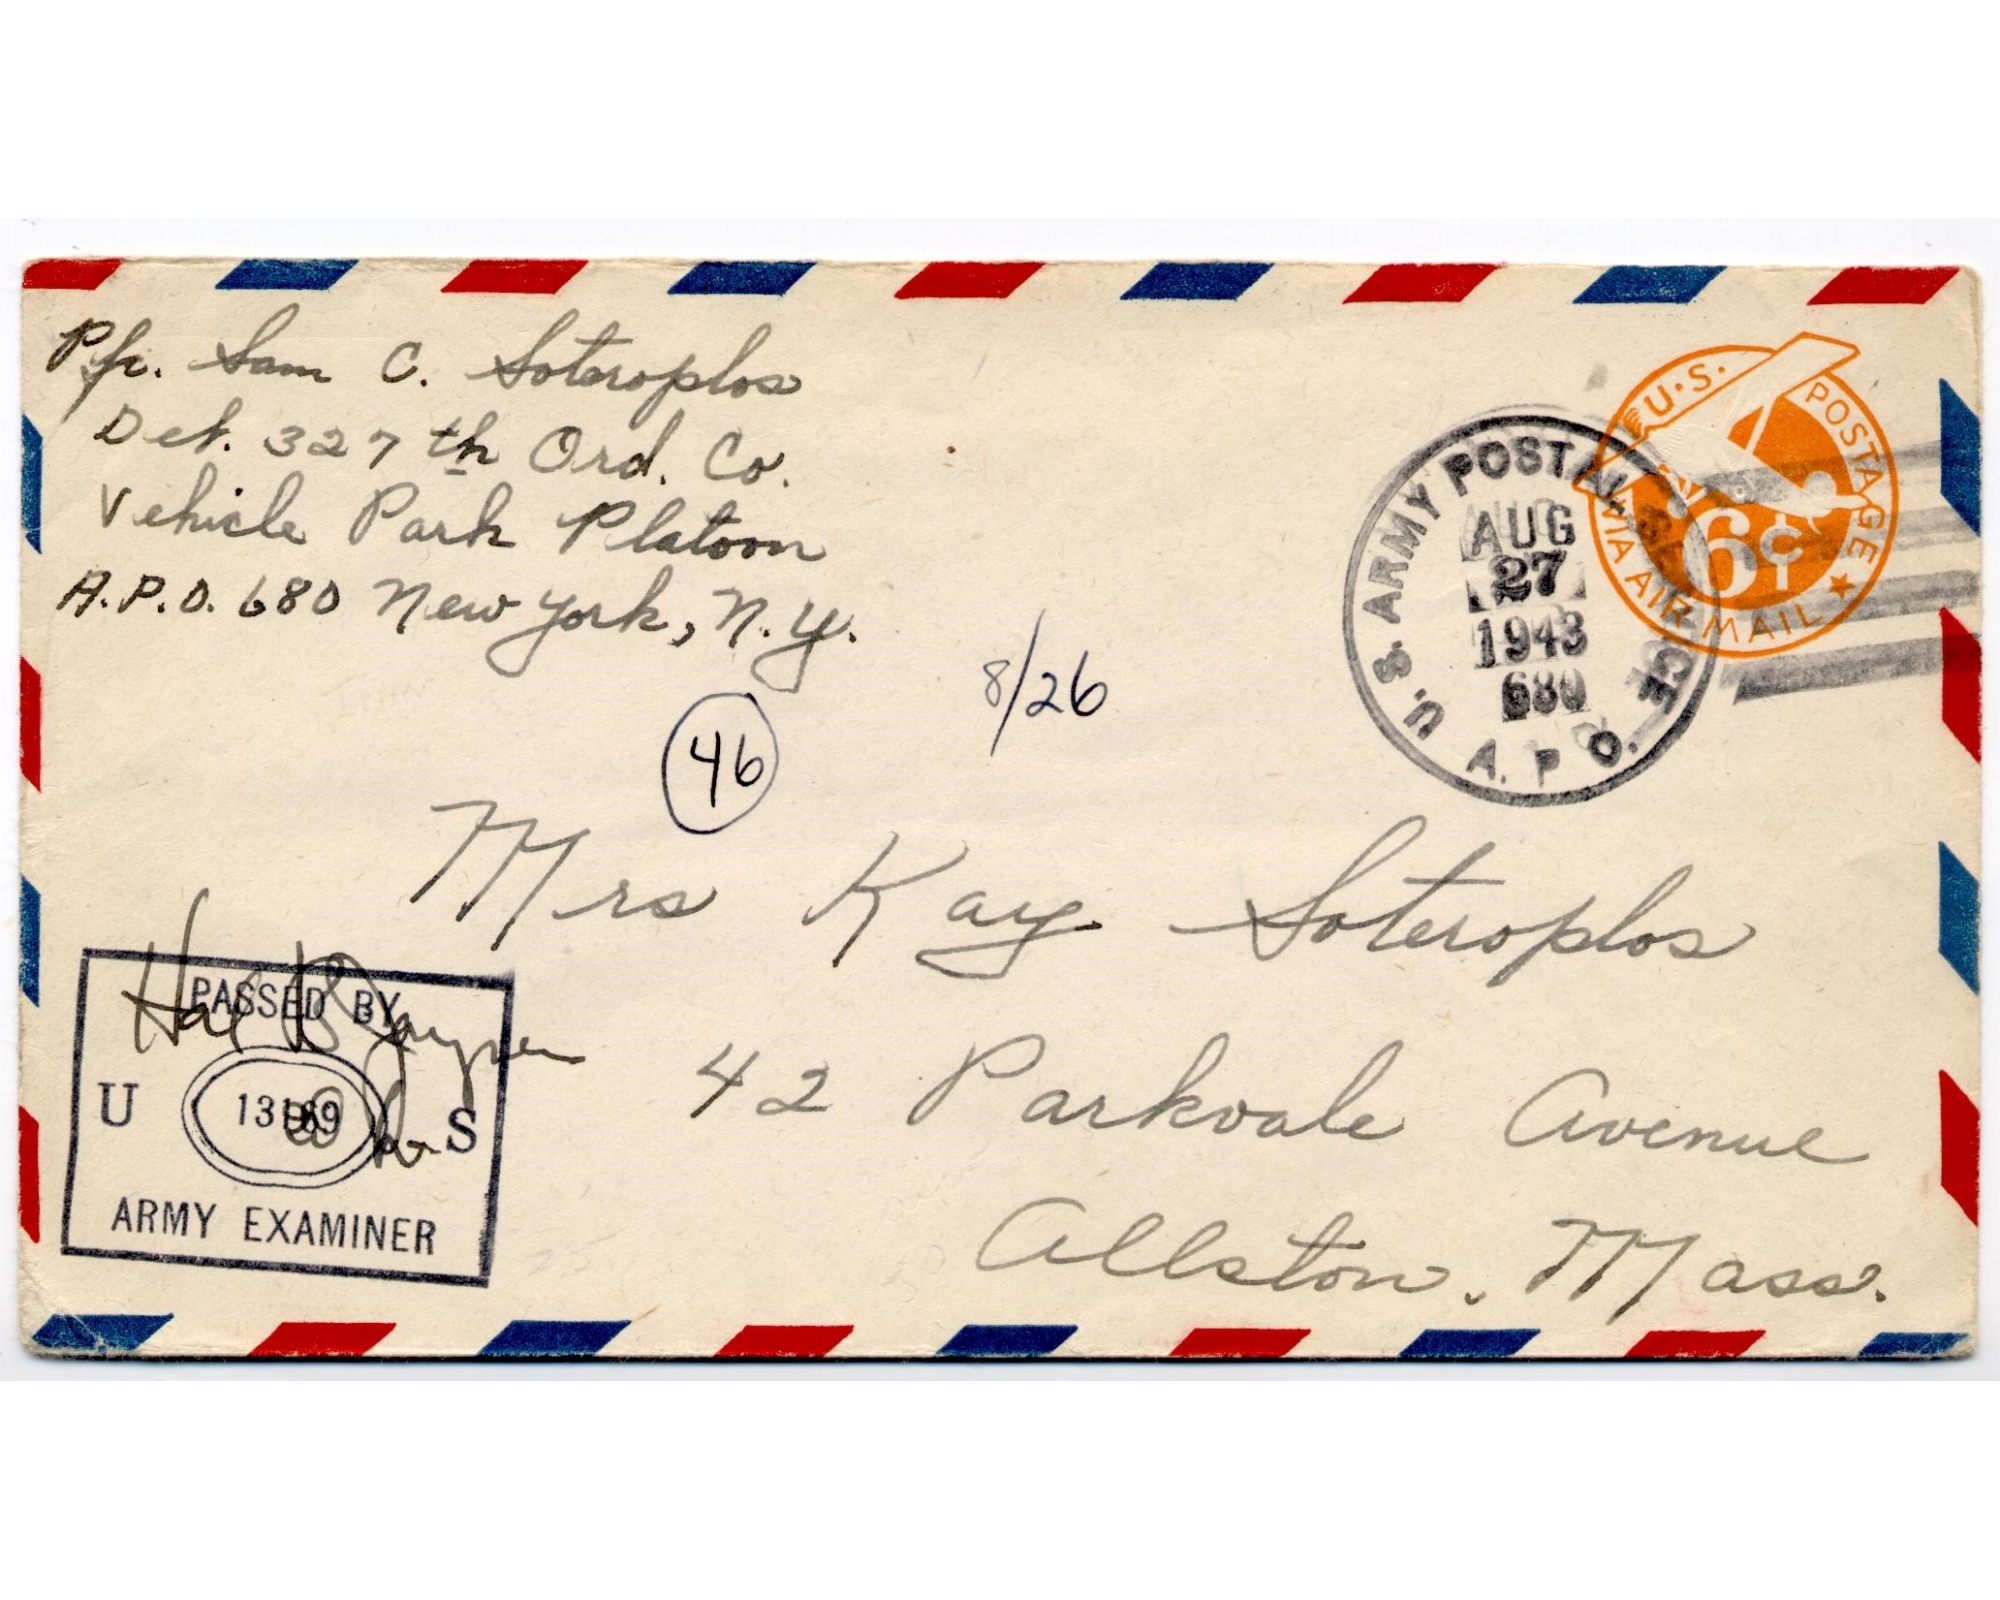 Pfc. Sam C. Soteroplos
Det. 327th Ord. Co.
Vehicle Park Platoon
A.P.O. 680 New York, N.Y.
U.S. POSTAGE
6¢
VIA AIR MAIL
U.S. ARMY POSTAL SERVICE
AUG
27
1943
680
A.P.O.
8/26
46
Mrs Kay Soteroplos
42 Parkvale Avenue
Allston, Mass.
PASSED BY
U 13169 S
ARMY EXAMINER
Hal